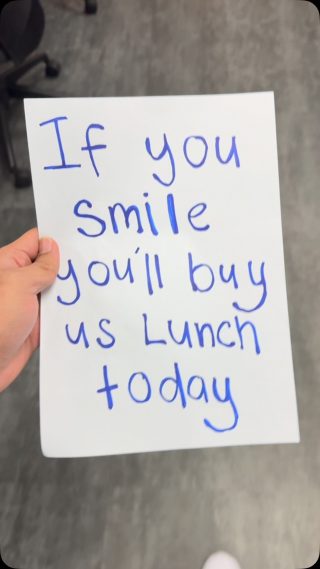 If you
smile
you'll buy
us Lunch
today